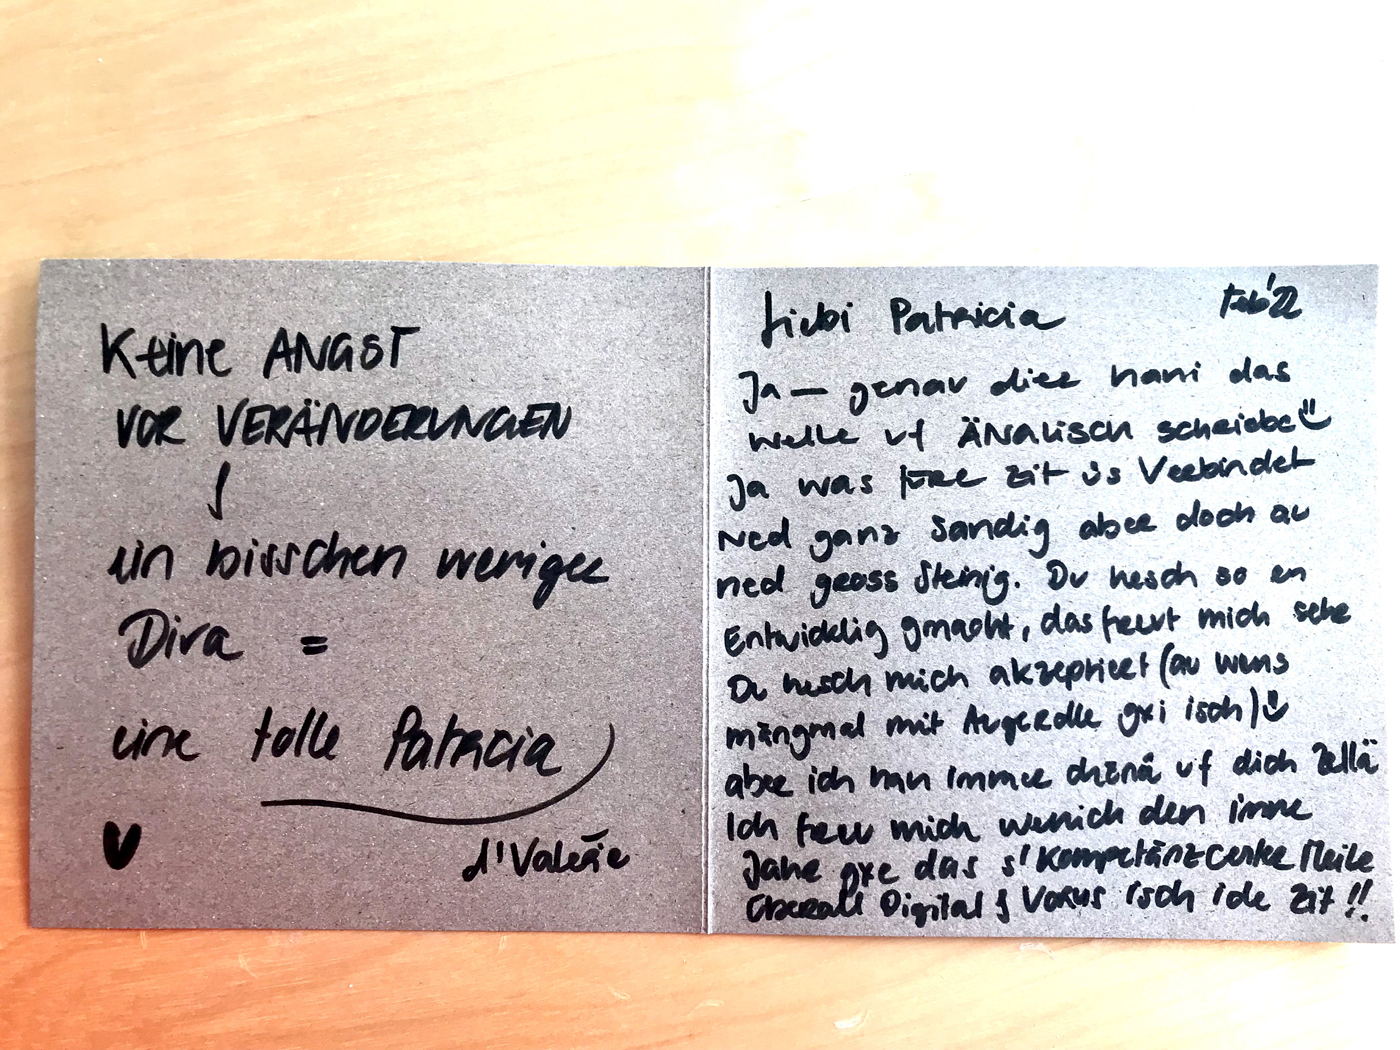 Keine ANGST
VOR VERÄNDERUNGEN
&
ein bisschen weniger
Diva =
eine tolle Patricia
d'Valérie
Feb'22
Liebi Patricia
Ja – genau dier hani das
welle uf ÄNALISCH schriebe
Ja was füre Zit üs Verbindet
Ned ganz Sandig aber doch au
ned gross Steinig. Du hesch so en
Entwicklig gmacht, das freut mich sehr
Du hesch mich akzeptiert (au wens
mängmal mit Augerolle gxi isch)
aber ich han immer chönä uf dich Zellä
Ich freu mich wenich den imne
Jahr gxe das s'Kompetänzcenter Meile
Überall Digital & Vorus isch ide Zit!!